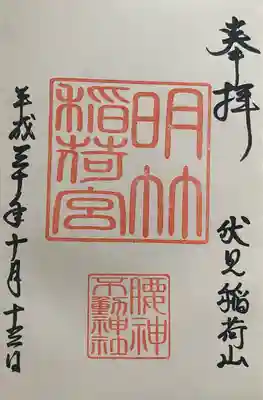 奉拝
伏見稲荷山
明竹
稲荷宮
腰神
不動神社
平成三十年十月十日